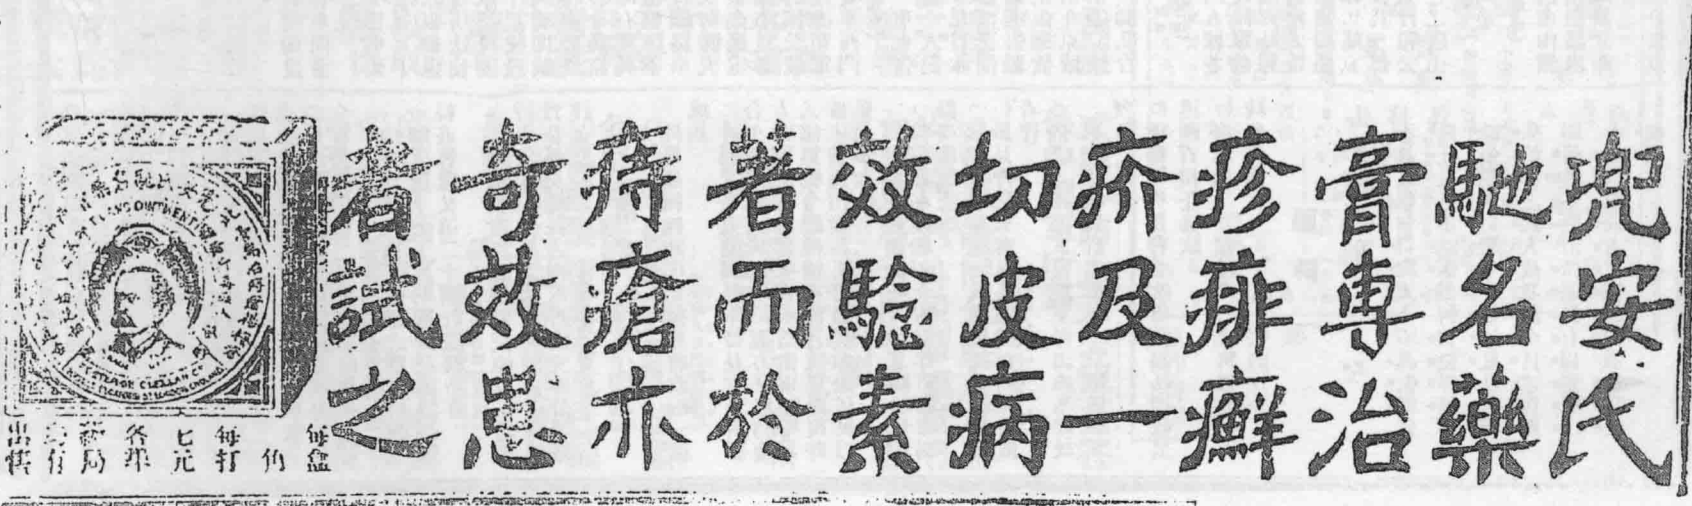 兜安氏
馳名藥
膏專治
疹痱癬
疥及一
切皮病
效驗素
著而於
痔瘡亦
奇效患
者試之
每盒
角
每打
七元
各埠
藥局
均有
出售